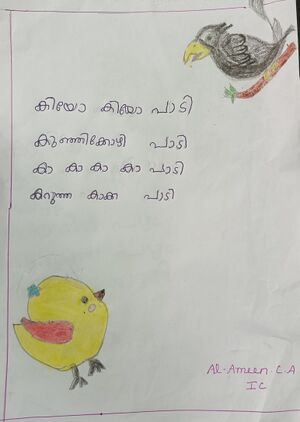 കിയോ കിയോ പാടി
കുഞ്ഞിക്കോഴി പാടി
കാ കാ കാ കാ പാടി
കറുത്ത കാക്ക പാടി
Al-Ameen.C.A
IC